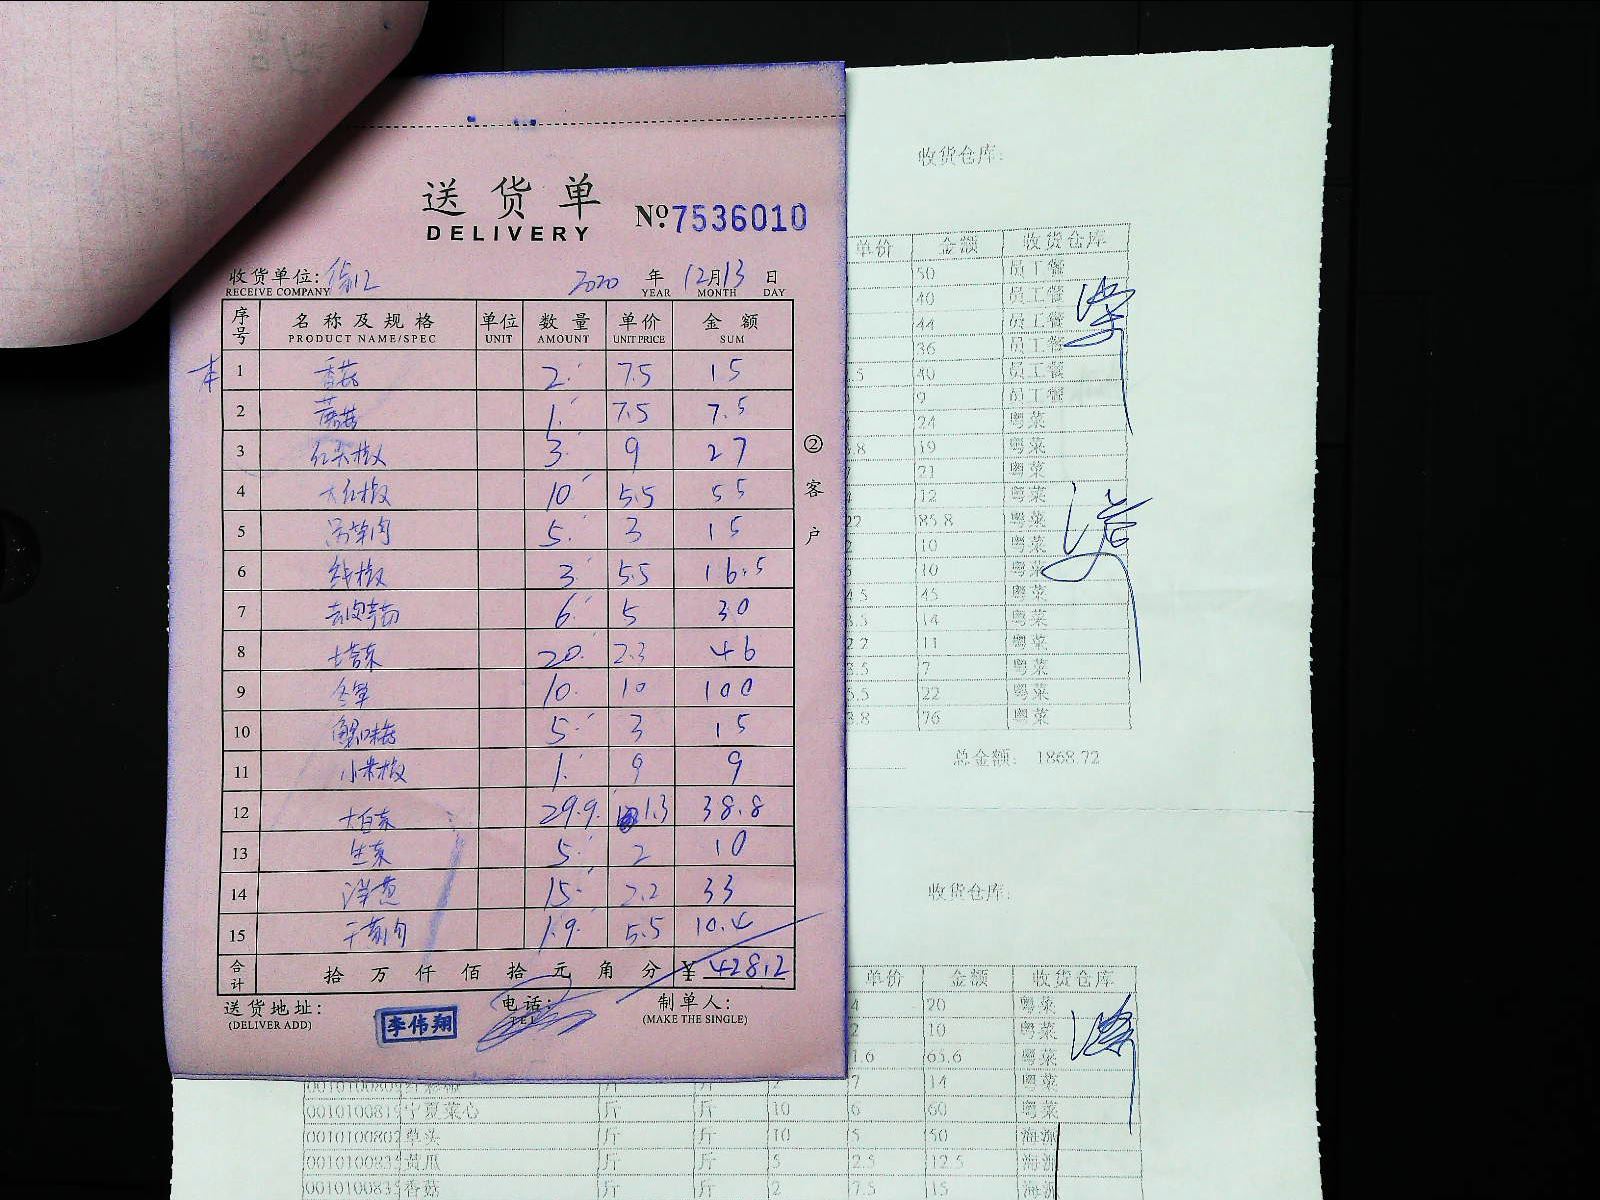 送货单
DELIVERY
№ 7536010
收货单位:
RECEIVE COMPANY
2020 年 12月13 日
YEAR MONTH DAY
序号 名称及规格 单位 数量 单价 金额
PRODUCT NAME/SPEC UNIT AMOUNT UNIT PRICE SUM
1 香菇 2 7.5 15
2 蘑菇 1 7.5 7.5
3 红尖椒 3 9 27
4 大红椒 10 5.5 55
5 5 3 15
6 线椒 3 5.5 16.5
7 6 5 30
8 20 2.3 46
9 冬笋 10 10 100
10 蟹味菇 5 3 15
11 小米椒 1 9 9
12 大白菜 29.9 1.3 38.8
13 生菜 5 2 10
14 洋葱 15 2.2 33
15 1.9 5.5 10.4
合计 拾 万 仟 佰 拾 元 角 分 ¥ 428.2
送货地址:
(DELIVER ADD)
李伟翔
电话:
TEL
制单人:
(MAKE THE SINGLE)
②客户
收货仓库:
单价 金额 收货仓库
50 员工餐
40 员工餐
44 员工餐
36 员工餐
.5 40 员工餐
9 员工餐
24 粤菜
.8 19 粤菜
21 粤菜
12 粤菜
22 85.8 粤菜
2 10 粤菜
10 粤菜
4.5 45 粤菜
3.5 14 粤菜
2.2 11 粤菜
3.5 7 粤菜
5.5 22 粤菜
3.8 76 粤菜
总金额: 1868.72
收货仓库:
单价 金额 收货仓库
4 20 粤菜
2 10 粤菜
1.6 65.6 粤菜
2 7 14 粤菜
宁夏菜心 斤 斤 10 6 60 粤菜
草头 斤 斤 10 5 50 海派
黄瓜 斤 斤 5 2.5 12.5 海派
香菇 斤 斤 2 7.5 15 海派